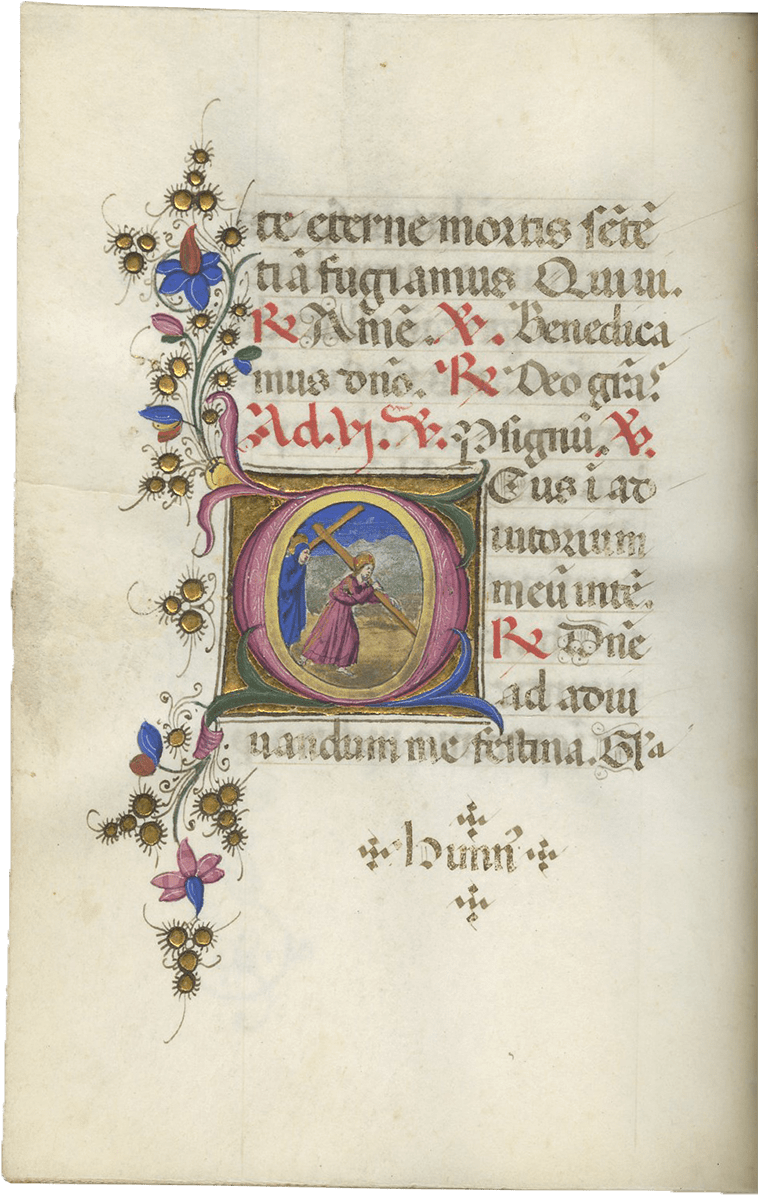 te eterne mortis sētē
tiā fugiamus Qui uı.
℟ Amē. ℣. Benedica
mus dn̄o. ℟ Deo gr̄as
Ad. vj. ℣. P signū. ℣.
Eus ī ad
iutorium
meū intē.
℟ Dn̄e
ad adiu
uandum me festina. Gl̄a
hẏmn̄